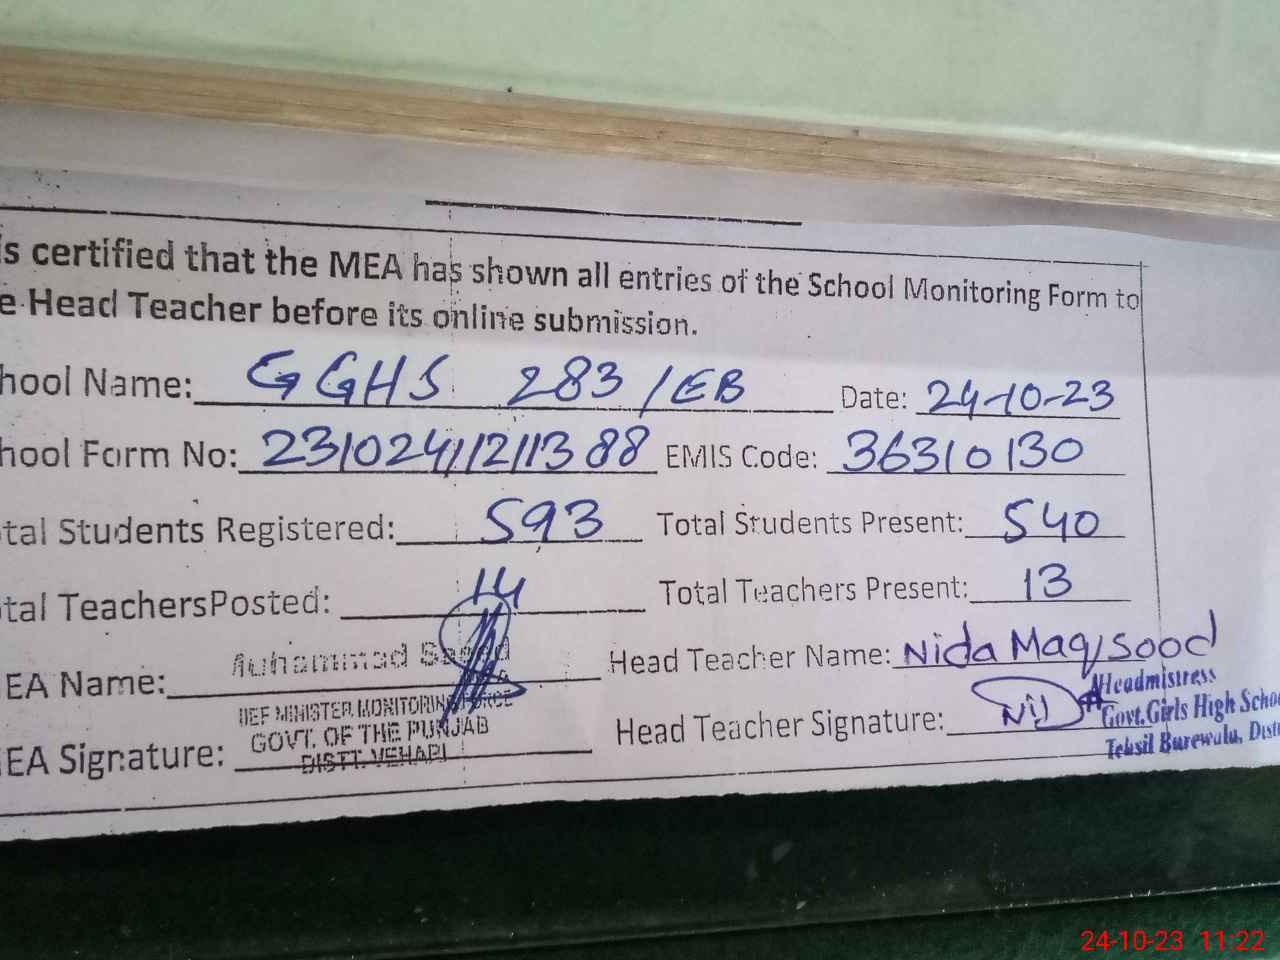 is certified that the MEA has shown all entries of the School Monitoring Form to
e Head Teacher before its online submission.
hool Name: GGHS 283/EB Date: 24-10-23
hool Form No: 231024121388 EMIS Code: 36310130
tal Students Registered: 593 Total Students Present: 540
tal TeachersPosted: 14 Total Teachers Present: 13
EA Name: Muhammad Saeed Head Teacher Name: Nida Maqsood
IEF MINISTER MONITORING FORCE
GOVT. OF THE PUNJAB
DISTT. VEHARI
EA Signature: Head Teacher Signature: Nid
Headmistress
Govt. Girls High Schoo
Tehsil Burewala, Dist
24-10-23 11:22